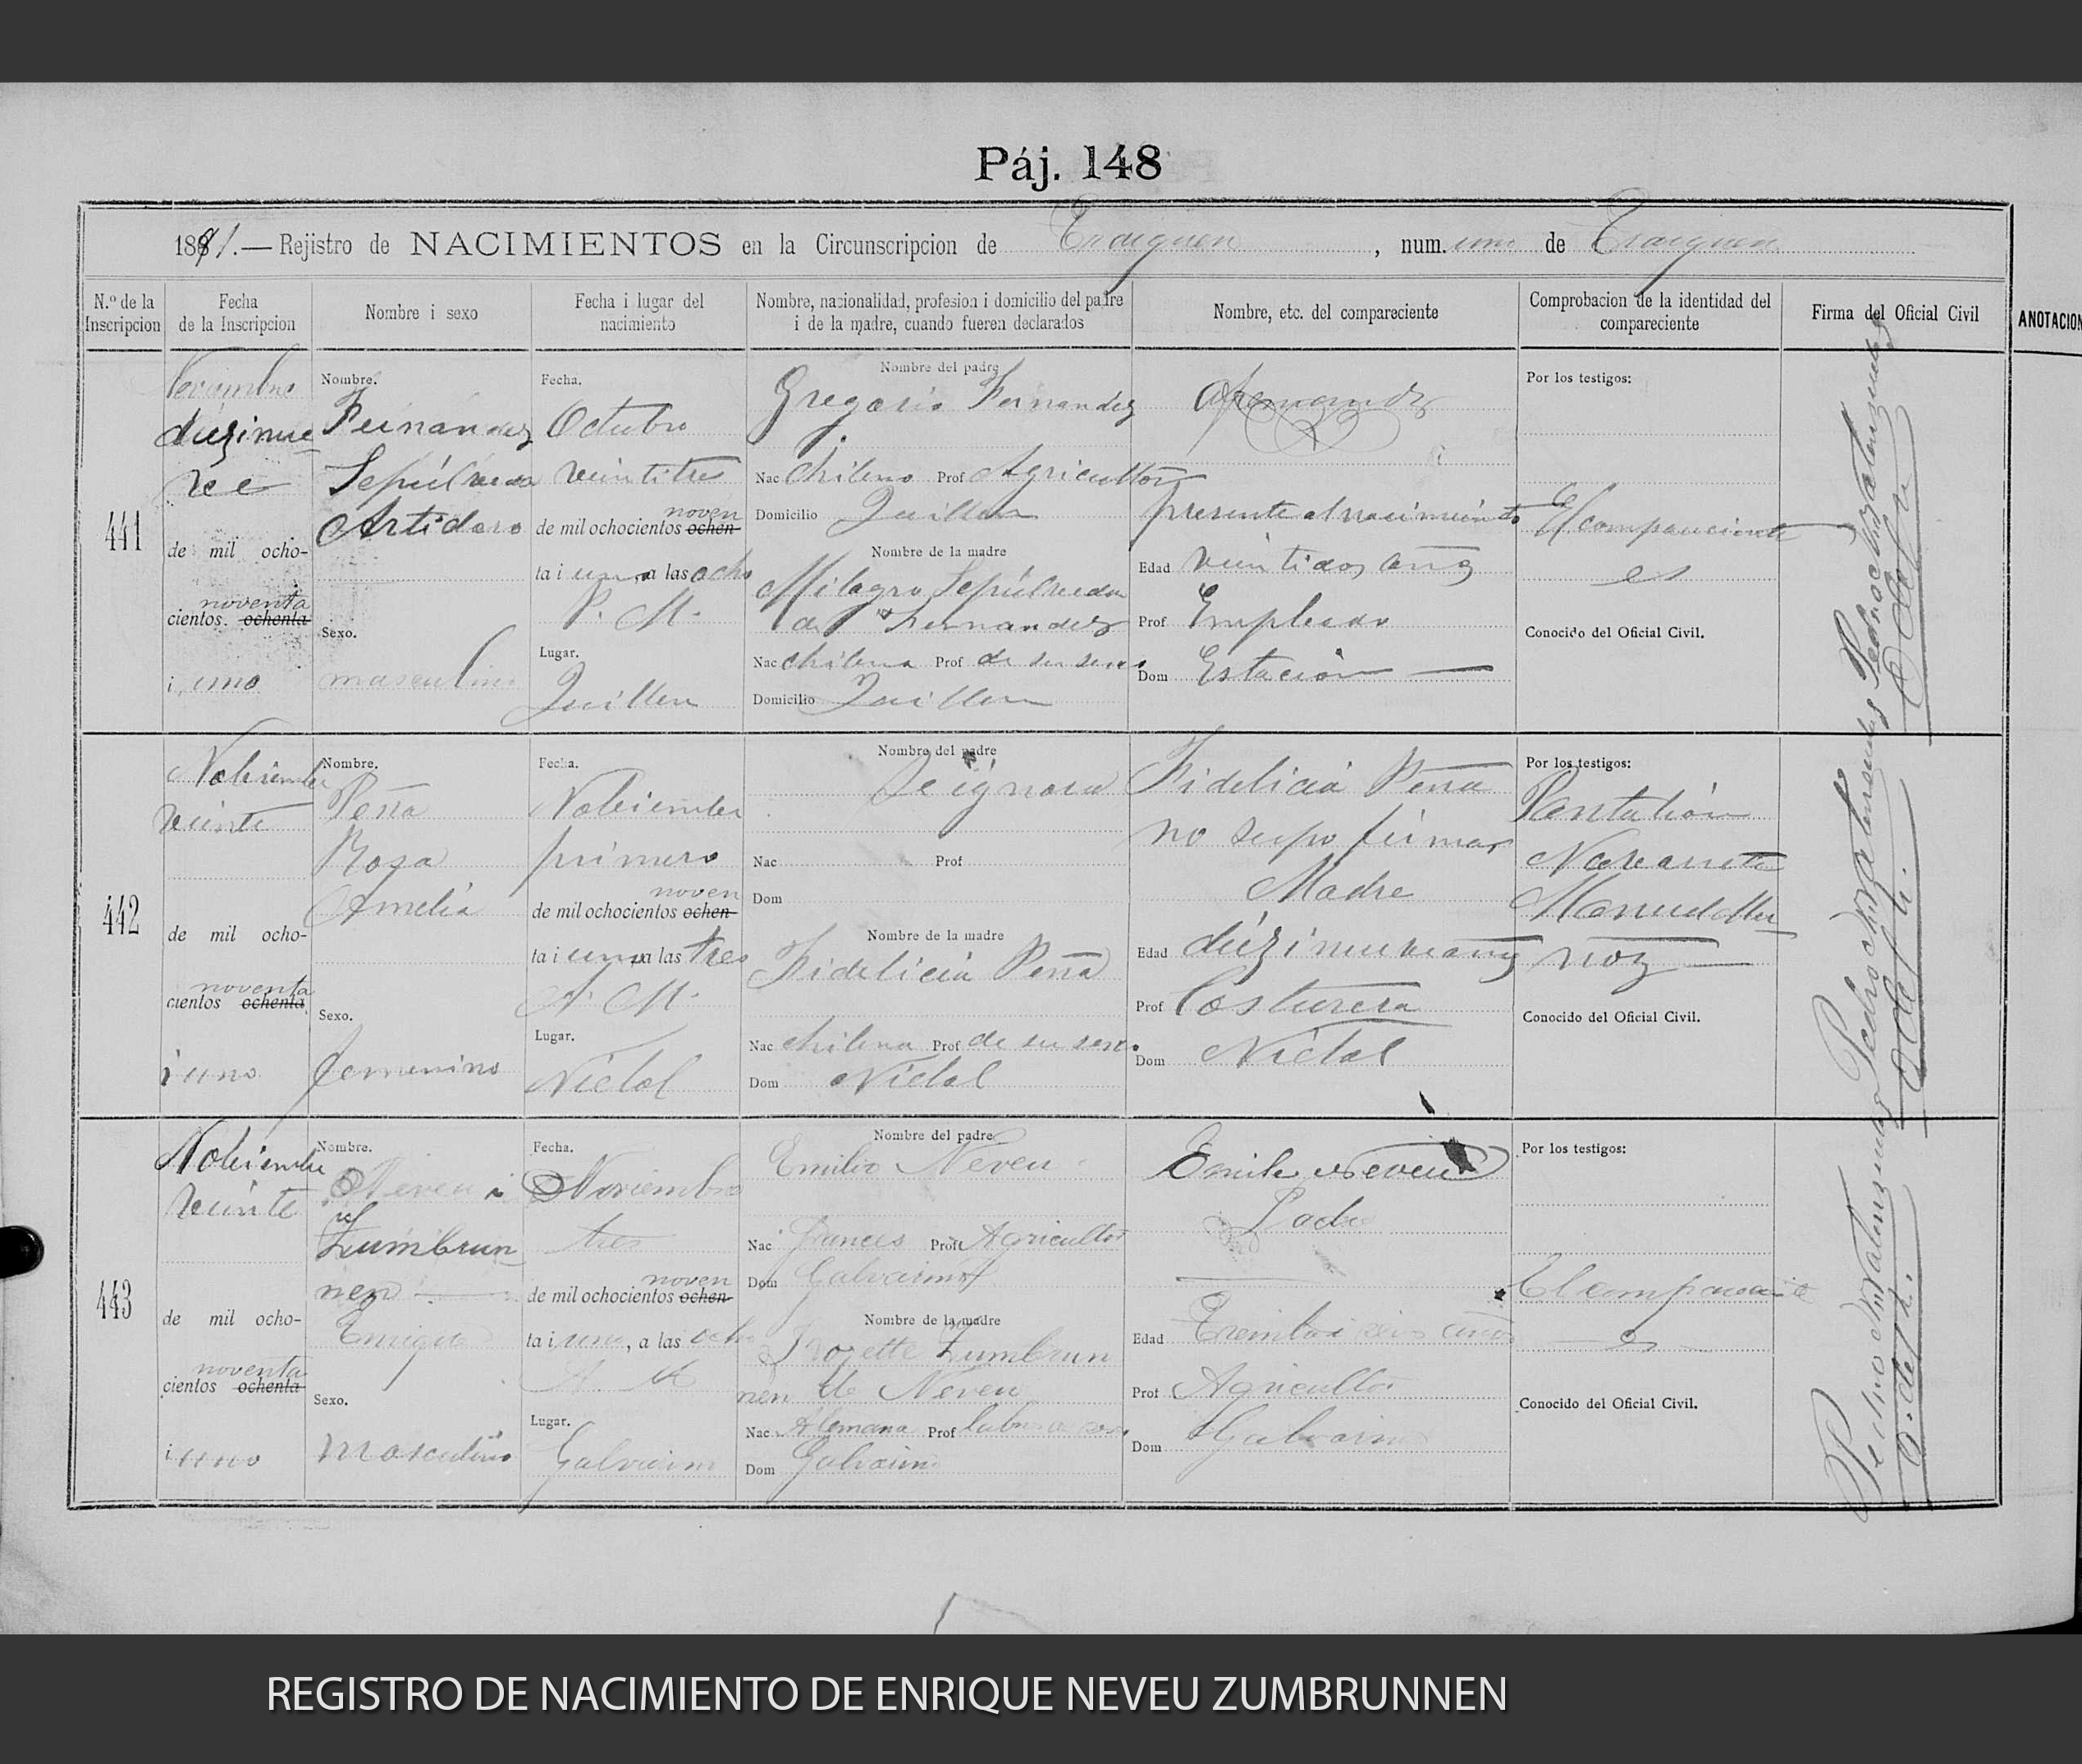 Páj. 148
1891.— Rejistro de NACIMIENTOS en la Circunscripcion de Traiguen, num. uno de Traiguen
N.º de la Inscripcion
Fecha de la Inscripcion
Nombre i sexo
Fecha i lugar del nacimiento
Nombre, nacionalidad, profesion i domicilio del padre i de la madre, cuando fueren declarados
Nombre, etc. del compareciente
Comprobacion de la identidad del compareciente
Firma del Oficial Civil
ANOTACION
441
diezinue
ve
de mil ocho-
noventa
cientos. ochenta
i uno
Nombre.
Fernandez
Sepúlveda
Artidoro
Sexo.
masculino
Fecha.
Octubre
veintitres
noven
de mil ochocientos ochen-
ta i uno, a las ocho
P. M.
Lugar.
Quillen
Nombre del padre
Gregorio Fernandez
Nac chileno Prof Agricultor
Domicilio Quillen
Nombre de la madre
Milagro Sepúlveda
de Fernandez
Nac chilena Prof de su sexo
Domicilio Quillen
presente al nacimiento
Edad veintidos años
Prof Empleado
Dom Estación
Por los testigos:
El compareciente
es
Conocido del Oficial Civil.
442
Nobiembre
veinte
de mil ocho-
noventa
cientos ochenta
i uno
Nombre.
Peña
Rosa
Amelia
Sexo.
femenino
Fecha.
Nobiembre
primero
noven
de mil ochocientos ochen-
ta i uno, a las tres
A. M.
Lugar.
Nombre del padre
Se ignora
Nac Prof
Dom
Nombre de la madre
Fidelicia Peña
Nac chilena Prof de su sexo
Dom
Fidelicia Peña
no supo firmar
Madre
Edad diezinueve años
Prof Costurera
Dom
Por los testigos:
Pantalion
Navarrete
Manuel Mu
ñoz
Conocido del Oficial Civil.
443
Nobiembre
veinte
de mil ocho-
noventa
cientos ochenta
i uno
Nombre.
Neveu i
Zumbrun
nen
Enrique
Sexo.
masculino
Fecha.
Noviembre
tres
noven
de mil ochocientos ochen-
ta i uno, a las ocho
A. M.
Lugar.
Galvarino
Nombre del padre
Emilio Neveu
Nac frances Prof Agricultor
Dom Galvarino
Nombre de la madre
Zumbrun
nen de Neveu
Nac Alemana Prof
Dom Galvarino
Emile Neveu
Padre
Edad Treintai seis años
Prof Agricultor
Dom Galvarino
Por los testigos:
El compareciente
es
Conocido del Oficial Civil.
REGISTRO DE NACIMIENTO DE ENRIQUE NEVEU ZUMBRUNNEN